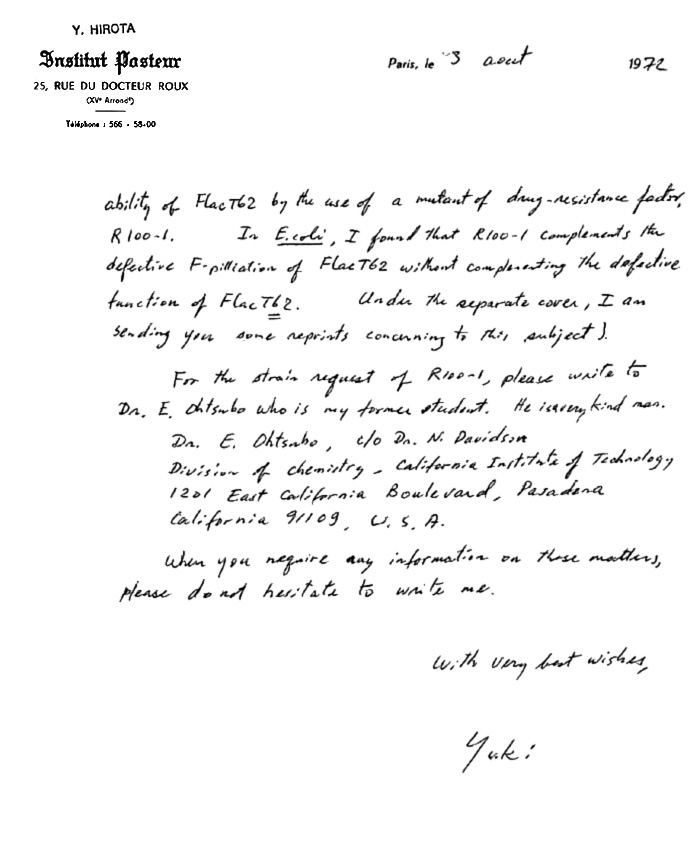 Y. HIROTA
Institut Pasteur
25, RUE DU DOCTEUR ROUX
(XVe Arrondt)
Téléphone : 566 - 58-00
Paris, le 3 aout 1972
ability of FlacT62 by the use of a mutant of drug-resistance factor,
R100-1. In E.coli, I found that R100-1 complements the
defective F-pilliation of FlacT62 without complementing the defective
function of FlacT62. Under the separate cover, I am
sending you some reprints concerning to this subject).
For the strain request of R100-1, please write to
Dr. E. Ohtsubo who is my former student. He is very kind man.
Dr. E. Ohtsubo, c/o Dr. N. Davidson
Division of chemistry - California Institute of Technology
1201 East California Boulevard, Pasadena
California 91109, U.S.A.
When you require any information on those matters,
please do not hesitate to write me.
With very best wishes,
Yuki